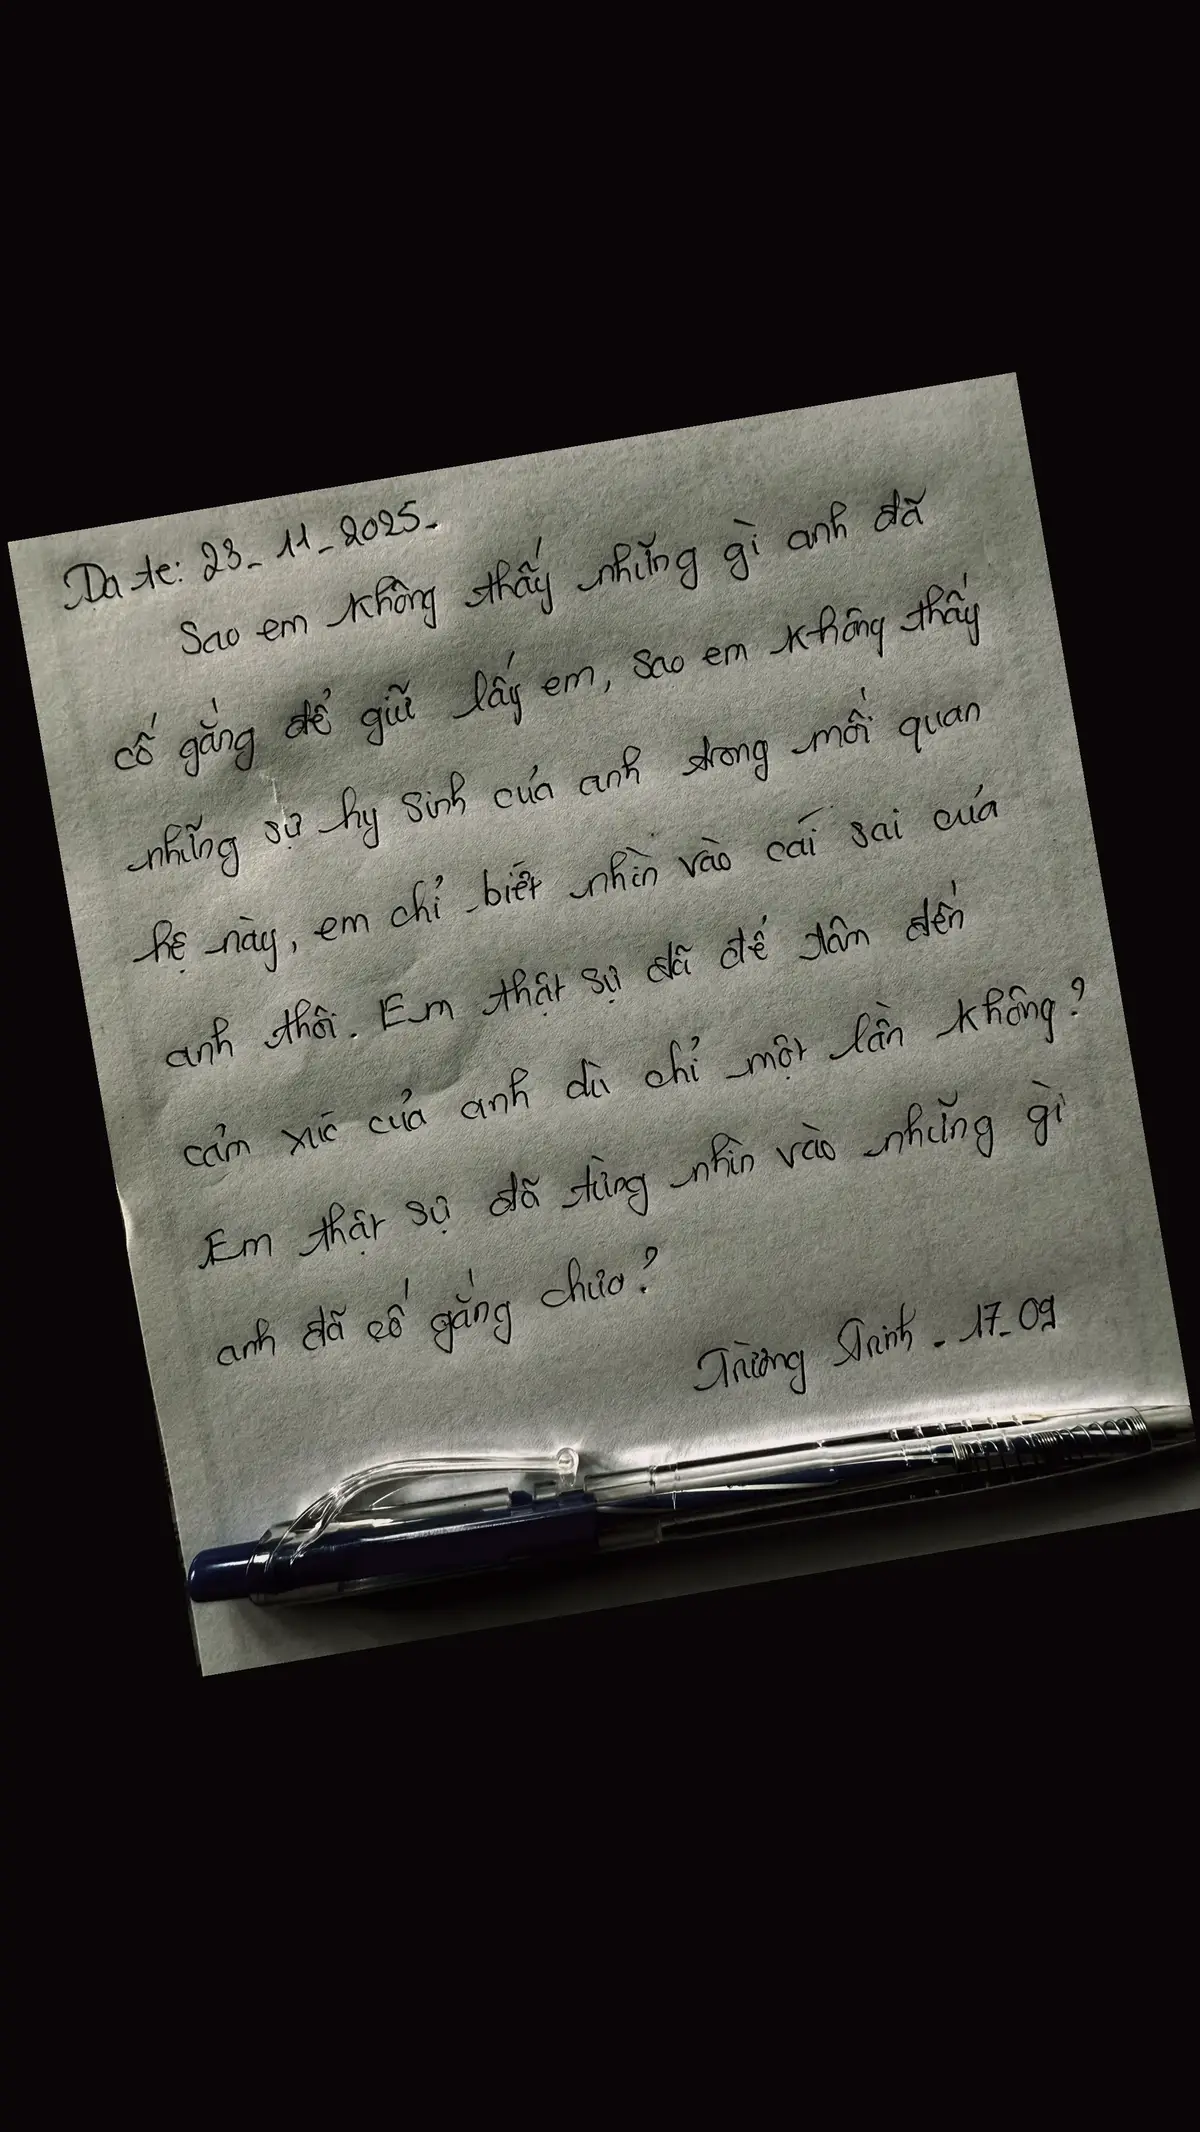 Date: 23_11_2025_
Sao em không thấy những gì anh đã
cố gắng để giữ lấy em, sao em không thấy
những sự hy sinh của anh trong mối quan
hệ này, em chỉ biết nhìn vào cái sai của
anh thôi. Em thật sự đã để tâm đến
cảm xúc của anh dù chỉ một lần không?
Em thật sự đã từng nhìn vào những gì
anh đã cố gắng chưa?
Trường Trinh_17_09